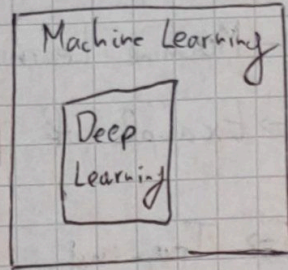 Machine Learning
Deep
Learning